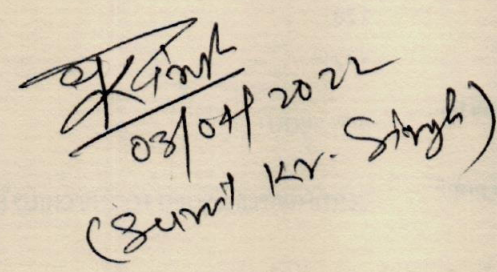 03/04/2022
(Sunil Kr. Singh)